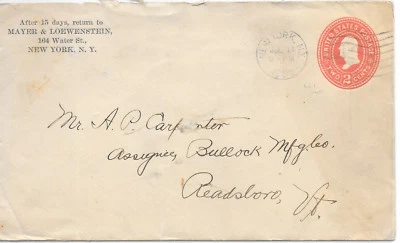 After 15 days, return to
MAYER & LOEWENSTEIN,
164 Water St.,
NEW YORK, N. Y.
NEW YORK, N.Y.
UNITED STATES POSTAGE
2
TWO CENTS
Mr. A. P. Carp nter
Assignee, Bullock Mfg. Co.
Readsboro, Vt.